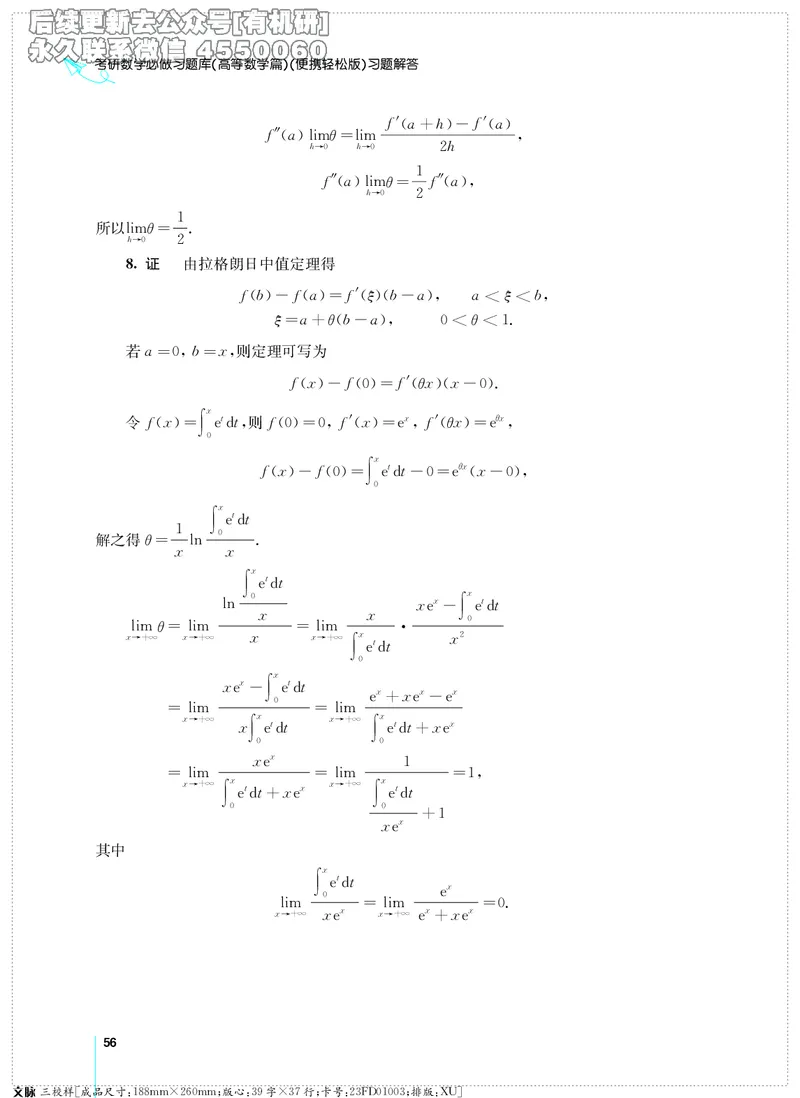 后续更新去公众号[有机研]
永久联系微信 4550060
考研数学必做习题库(高等数学篇)(便携轻松版)习题解答
f″(a) lim_{h→0} θ = lim_{h→0} \frac{f′(a+h)-f′(a)}{2h},
f″(a) lim_{h→0} θ = \frac{1}{2} f″(a),
所以 lim_{h→0} θ = \frac{1}{2}.
8. 证 由拉格朗日中值定理得
f(b)-f(a)=f′(ξ)(b-a), a<ξ<b,
ξ=a+θ(b-a), 0<θ<1.
若 a=0, b=x,则定理可写为
f(x)-f(0)=f′(θx)(x-0).
令 f(x)=∫_0^x e^t dt,则 f(0)=0, f′(x)=e^x, f′(θx)=e^{θx},
f(x)-f(0)=∫_0^x e^t dt-0=e^{θx}(x-0),
解之得 θ=\frac{1}{x} ln \frac{∫_0^x e^t dt}{x}.
lim_{x→+∞} θ = lim_{x→+∞} \frac{ln \frac{∫_0^x e^t dt}{x}}{x} = lim_{x→+∞} \frac{x}{∫_0^x e^t dt} · \frac{xe^x-∫_0^x e^t dt}{x^2}
= lim_{x→+∞} \frac{xe^x-∫_0^x e^t dt}{x∫_0^x e^t dt} = lim_{x→+∞} \frac{e^x+xe^x-e^x}{∫_0^x e^t dt+xe^x}
= lim_{x→+∞} \frac{xe^x}{∫_0^x e^t dt+xe^x} = lim_{x→+∞} \frac{1}{\frac{∫_0^x e^t dt}{xe^x}+1} =1,
其中
lim_{x→+∞} \frac{∫_0^x e^t dt}{xe^x} = lim_{x→+∞} \frac{e^x}{e^x+xe^x} =0.
56
文脉 三校样[成品尺寸:188mm×260mm;版心:39字×37行;卡号:23FD01003;排版:XU]